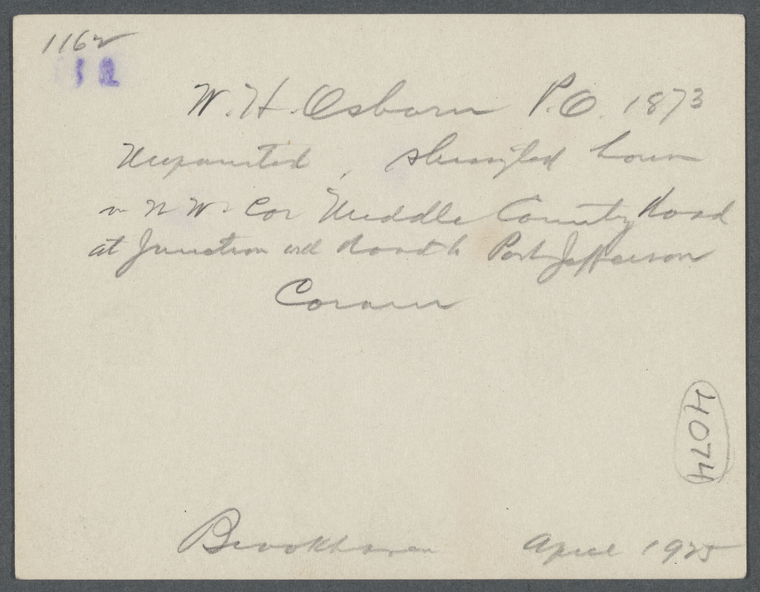 1162
W. H. Osborn P.O. 1873
Unpainted, shingled house
on N W. Cor Middle County Road
at Junction with Road to Port Jefferson
Coram
4074
Brookhaven April 1925